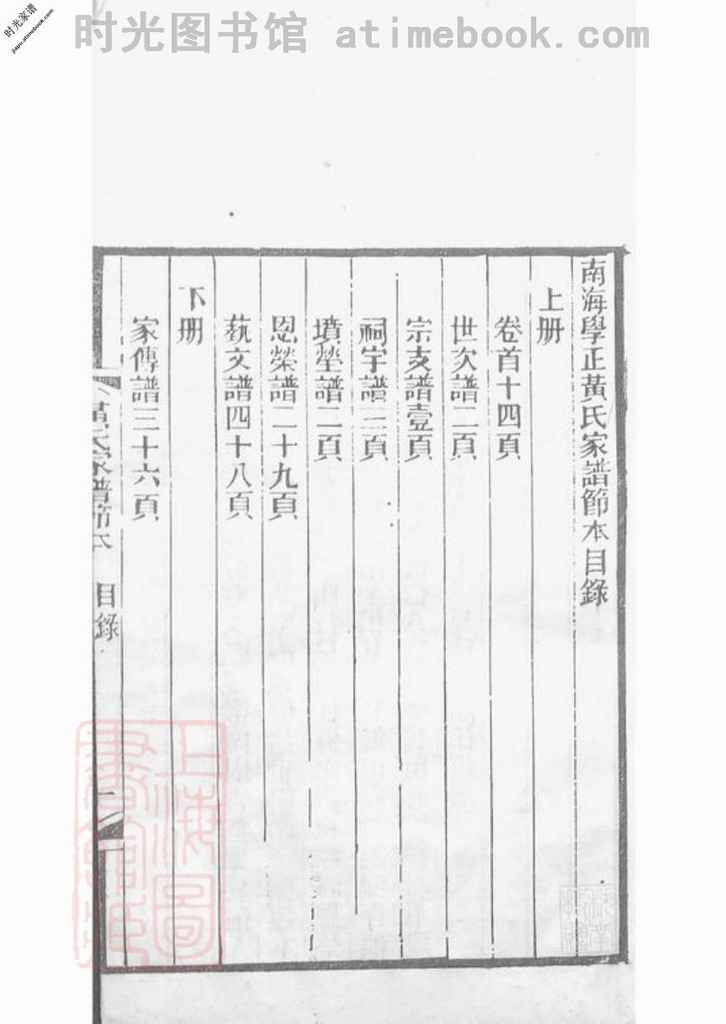 时光图书馆 atimebook.com
时光家谱
jiapu.atimebook.com
南海學正黃氏家譜節本目錄
上册
卷首十四頁
世次譜二頁
宗支譜壹頁
祠宇譜三頁
墳塋譜二頁
恩榮譜二十九頁
藝文譜四十八頁
下册
家傳譜三十六頁
黃氏家譜節本 目錄 一
上海圖書館藏